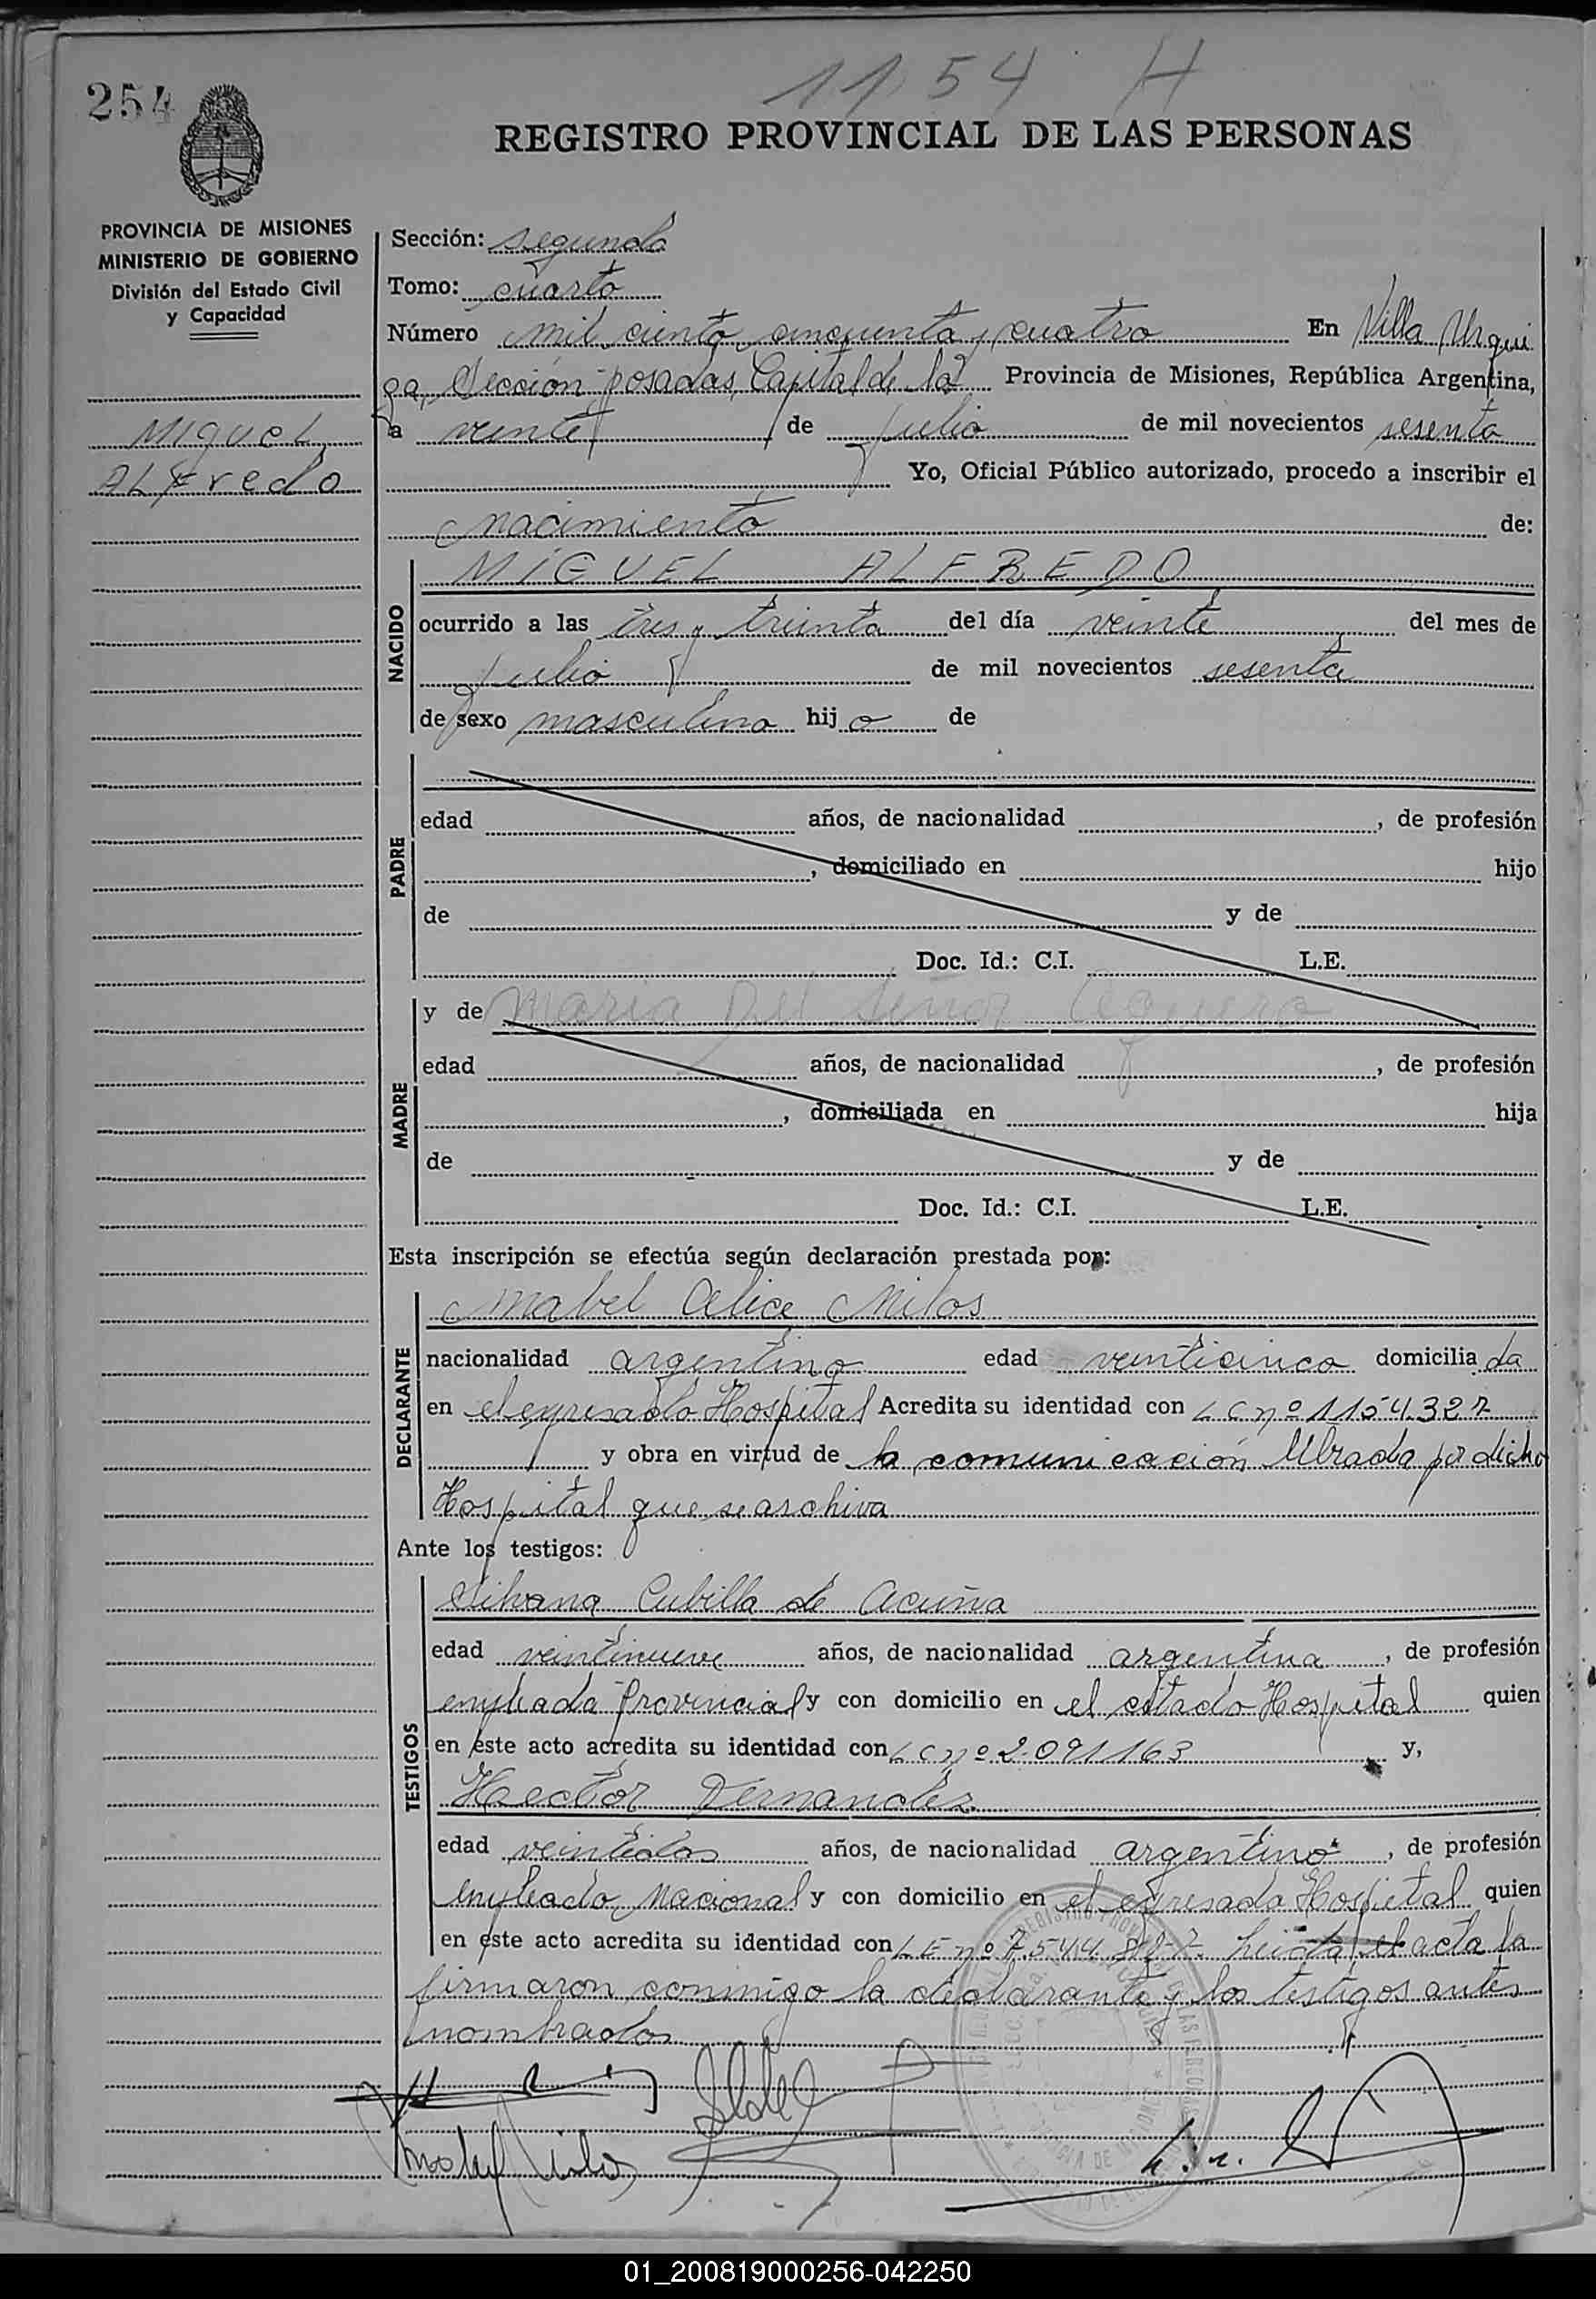 1154 H
254
REGISTRO PROVINCIAL DE LAS PERSONAS
PROVINCIA DE MISIONES
MINISTERIO DE GOBIERNO
División del Estado Civil
y Capacidad
Miguel
ALFredo
Sección: segunda
Tomo: cuarto
Número mil ciento cincuenta y cuatro En Villa Urqui
za, Sección Posadas, Capital de la Provincia de Misiones, República Argentina,
a veinte de julio de mil novecientos sesenta
Yo, Oficial Público autorizado, procedo a inscribir el
nacimiento de:
NACIDO
MIGUEL ALFREDO
ocurrido a las tres y treinta del día veinte del mes de
julio de mil novecientos sesenta
de sexo masculino hijo de
PADRE
edad años, de nacionalidad , de profesión
, domiciliado en hijo
de y de
Doc. Id.: C.I. L.E.
MADRE
y de Maria Del Señor Aguero
edad años, de nacionalidad , de profesión
, domiciliada en hija
de y de
Doc. Id.: C.I. L.E.
Esta inscripción se efectúa según declaración prestada por:
DECLARANTE
Mabel Alice Milos
nacionalidad argentina edad veinticinco domiciliada
en el expresado Hospital Acredita su identidad con L C nº 1154.327
y obra en virtud de la comunicación librada por dicho
Hospital que se archiva
Ante los testigos:
TESTIGOS
Silvana Cubilla de Acuña
edad veintinueve años, de nacionalidad argentina, de profesión
empleada Provincial y con domicilio en el citado Hospital quien
en este acto acredita su identidad con L C nº 2.091163 y,
Hector Fernandez
edad veintidos años, de nacionalidad argentino, de profesión
empleado Nacional y con domicilio en el expresado Hospital quien
en este acto acredita su identidad con L E nº 7.544 el acta la
firmaron conmigo la declarante y los testigos antes
nombrados
Mabel Milos
01_200819000256-042250